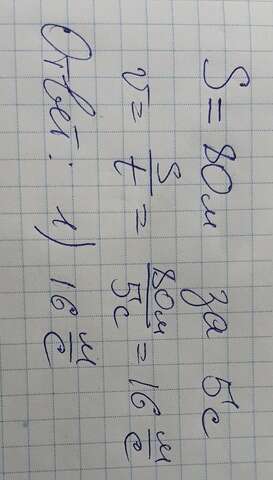 S = 80 м за 5с
v = S/t = 80м/5с = 16 м/с
Ответ: 1) 16 м/с